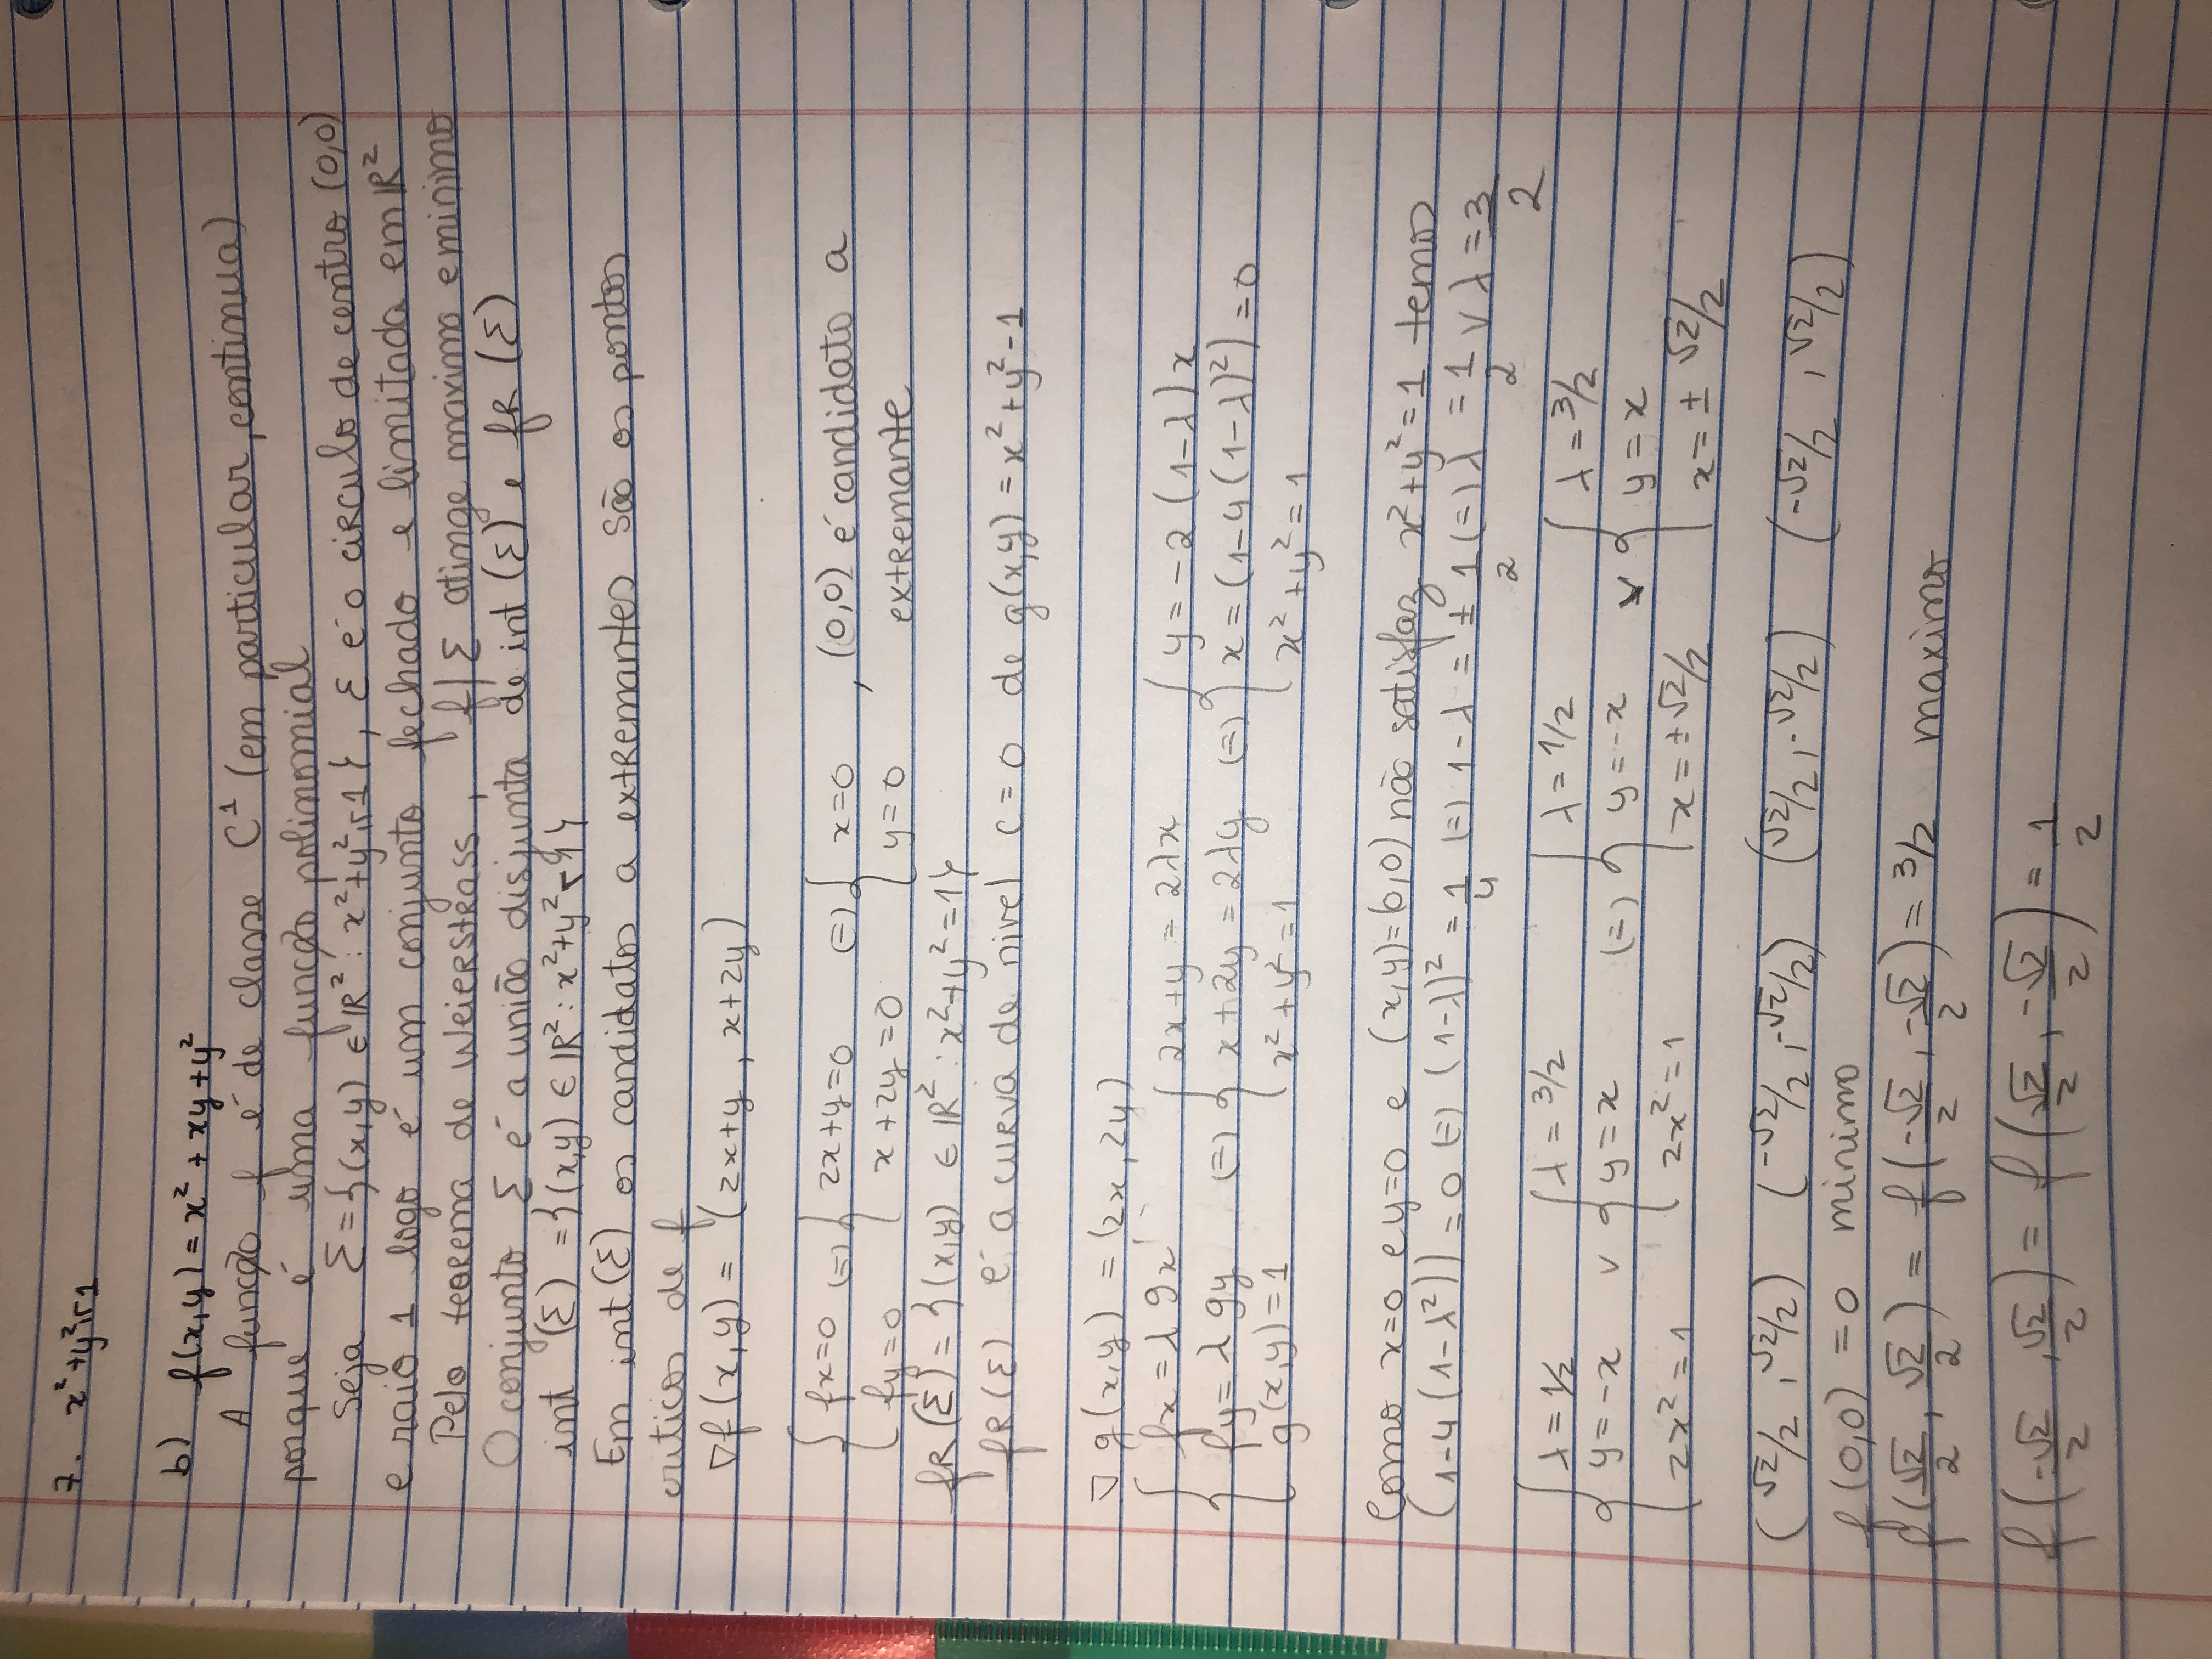 7. x²+y²≤1
b) f(x,y) = x² + xy + y²
A função f é de classe C¹ (em particular, continua)
porque é uma função polinomial
Seja Σ = {(x,y) ∈ IR² : x²+y²≤1}, Σ é o circulo de centro (0,0)
e raio 1 logo é um conjunto fechado e limitada em IR²
Pelo teorema de Weierstrass, f|Σ atinge maximo e minimo
O conjunto Σ é a união disjunta de int (Σ) e fR (Σ)
int (Σ) = {(x,y) ∈ IR² : x²+y² < 1}
Em int(Σ) os candidatos a extremantes são os pontos
criticos de f
∇f(x,y) = (2x+y , x+2y)
{ fx=0 (=) { 2x+y=0 (=) { x=0 , (0,0) é candidato a
fy=0 x+2y=0 y=0 extremante
fR(Σ) = {(x,y) ∈ IR² : x²+y²=1}
fR(Σ) é a curva de nivel C=0 de g(x,y) = x²+y²-1
∇g(x,y) = (2x, 2y)
{ fx = λ gx { 2x+y = 2λx { y = -2(1-λ)x
fy = λ gy (=) x+2y = 2λy (=) x = (1-4(1-λ)²) = 0
g(x,y)=1 x²+y²=1 x²+y²=1
Como x=0 e y=0 e (x,y)=(0,0) não satisfaz x²+y²=1 temos
(1-4(1-λ²)) = 0 (=) (1-λ)² = 1/4 (=) 1-λ = ± 1/2 (=) λ = 1/2 ∨ λ = 3/2
{ λ = 1/2 { λ = 3/2 { λ = 1/2 { λ = 3/2
y=-x ∨ y=x (=) y=-x ∨ y=x
2x²=1 2x²=1 x=±√2/2 x=± √2/2
(√2/2 , √2/2) (-√2/2 , -√2/2) (√2/2 , -√2/2) (-√2/2 , √2/2)
f(0,0) = 0 minimo
f(√2/2 , √2/2) = f(-√2/2 , -√2/2) = 3/2 maximo
f(-√2/2 , √2/2) = f(√2/2 , -√2/2) = 1/2